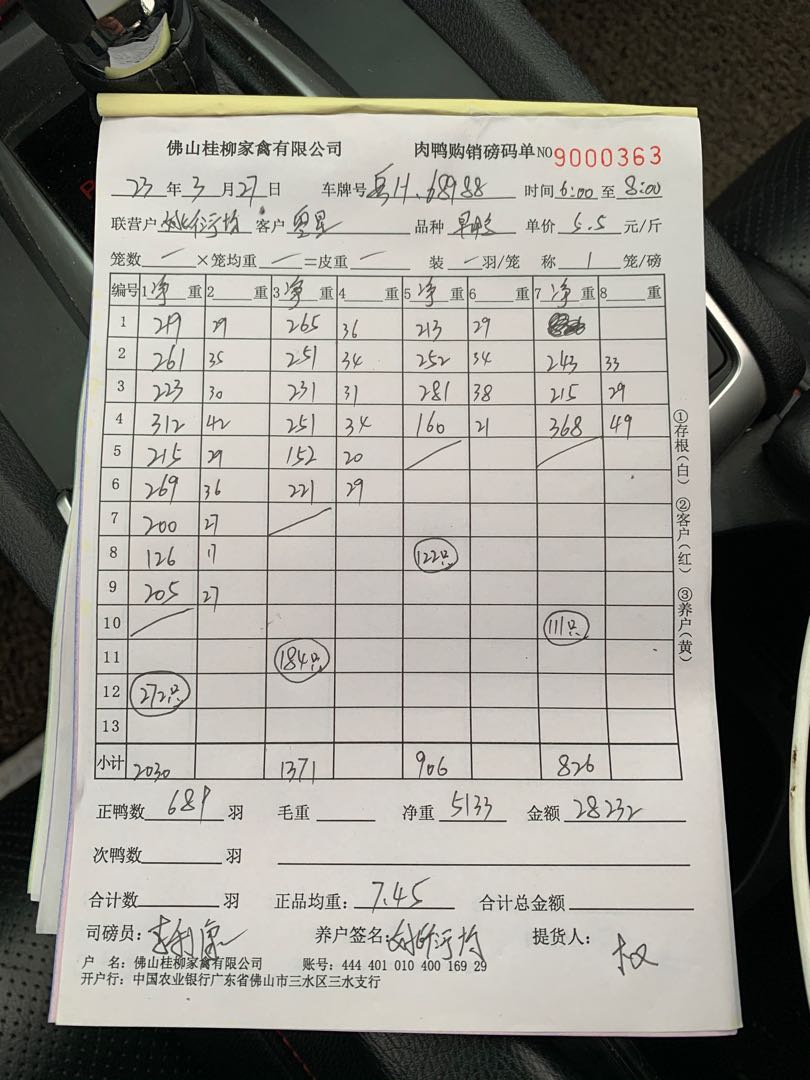 佛山桂柳家禽有限公司 肉鸭购销磅码单 NO 9000363
23 年 3 月 27 日 车牌号 粤H.68988 时间 6:00 至 8:00
联营户 客户 粤星 品种 单价 5.5 元/斤
笼数 一 ×笼均重 一 =皮重 一 装 一 羽/笼 称 1 笼/磅
编号 1 净 重 2 重 3 净 重 4 重 5 净 重 6 重 7 净 重 8 重
1 219 29 265 36 213 29
2 261 35 251 34 252 34 243 33
3 223 30 231 31 281 38 215 29
4 312 42 251 34 160 21 368 49
5 215 29 152 20
6 269 36 221 29
7 200 27
8 126 17 122只
9 205 27
10 111只
11 184只
12 272只
13
小计 2030 1371 906 826
①存根(白) ②客户(红) ③养户(黄)
正鸭数 689 羽 毛重 净重 5133 金额 28232
次鸭数 羽
合计数 羽 正品均重: 7.45 合计总金额
司磅员: 李利康 养户签名: 提货人: 权
户 名: 佛山桂柳家禽有限公司 账号: 444 401 010 400 169 29
开户行: 中国农业银行广东省佛山市三水区三水支行